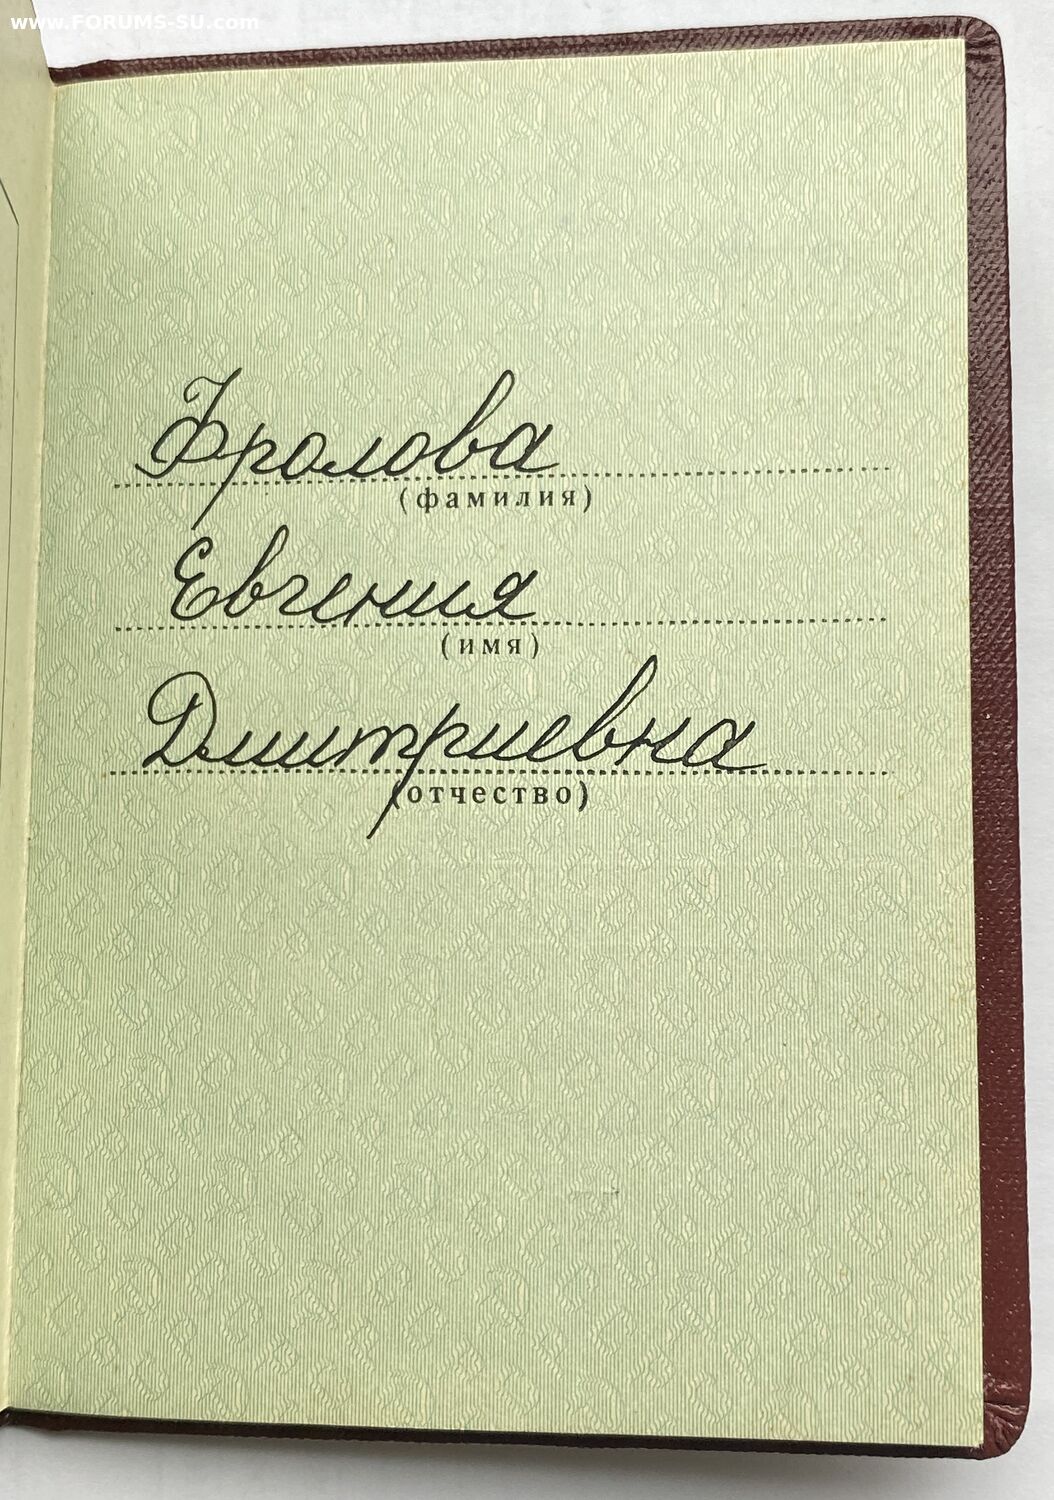 www.FORUMS-SU.com
Фролова
(фамилия)
Евгения
(имя)
Дмитриевна
(отчество)